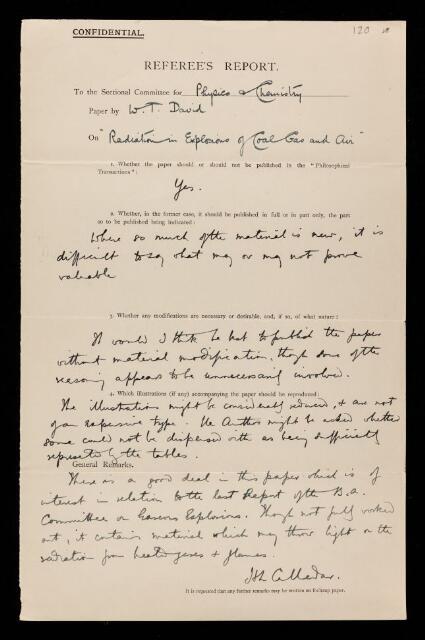 CONFIDENTIAL.
120
REFEREE'S REPORT.
To the Sectional Committee for Physics & Chemistry
Paper by W. T. David
On "Radiation in Explosions of Coal Gas and Air"
1. Whether the paper should or should not be published in the "Philosophical
Transactions":
Yes.
2. Whether, in the former case, it should be published in full or in part only, the part
so to be published being indicated:
Where so much of the material is new, it is
difficult to say what may or may not prove
valuable
3. Whether any modifications are necessary or desirable, and, if so, of what nature:
It would I think be best to publish the paper
without material modification, though some of the
reasoning appears to be unnecessarily involved.
4. Which illustrations (if any) accompanying the paper should be reproduced:
The illustrations might be considerably reduced, & are not
of an expensive type. The Author might be asked whether
some could not be dispensed with as being sufficiently
represented by the tables.
General Remarks.
There is a good deal in this paper which is of
interest in relation to the last Report of the B.A.
Committee on Gaseous Explosions. Though not fully worked
out, it contains material which may throw light on the
radiation from heated gases & flames.
H L Callendar.
It is requested that any further remarks may be written on foolscap paper.